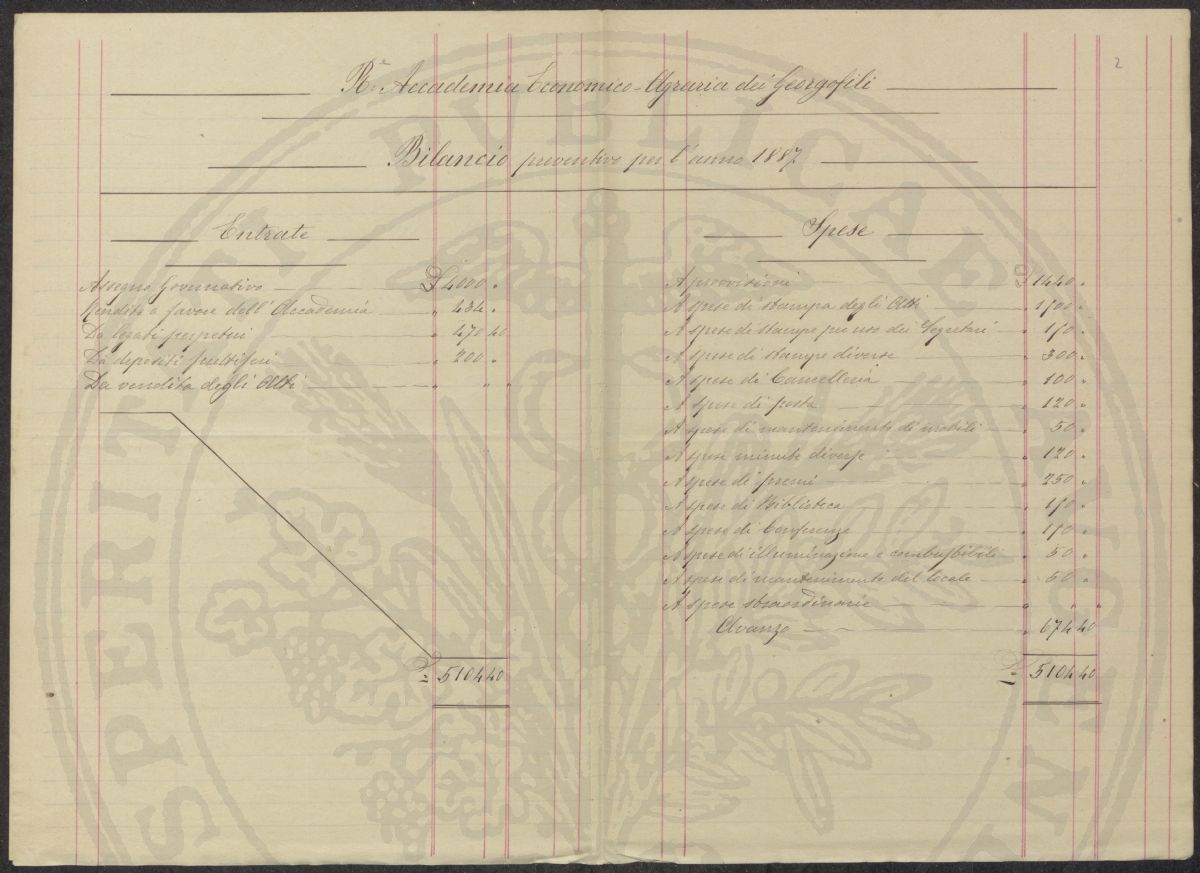 2
R.e Accademia Economico-Agraria dei Georgofili
Bilancio preventivo per l'anno 1887
Entrate
Assegno Governativo £ 4000 "
Rendita a favore dell'Accademia " 434 "
Da legati perpetui " 470 40
Da depositi fruttiferi " 200 "
Da vendita degli Atti " " "
£ 5104 40
Spese
A provvisioni £ 1440 "
A spese di stampa degli Atti " 1700 "
A spese di stampe per uso dei Segretari " 150 "
A spese di stampe diverse " 300 "
A spese di Cancelleria " 100 "
A spese di posta " 120 "
A spese di mantenimento di mobili " 50 "
A spese minute diverse " 120 "
A spese di premi " 250 "
A spese di Biblioteca " 150 "
A spese di Conferenze " 150 "
A spese di illuminazione e combustibili " 50 "
A spese di mantenimento del locale " 50 "
A spese straordinarie " " "
Avanzo " 474 40
£ 5104 40